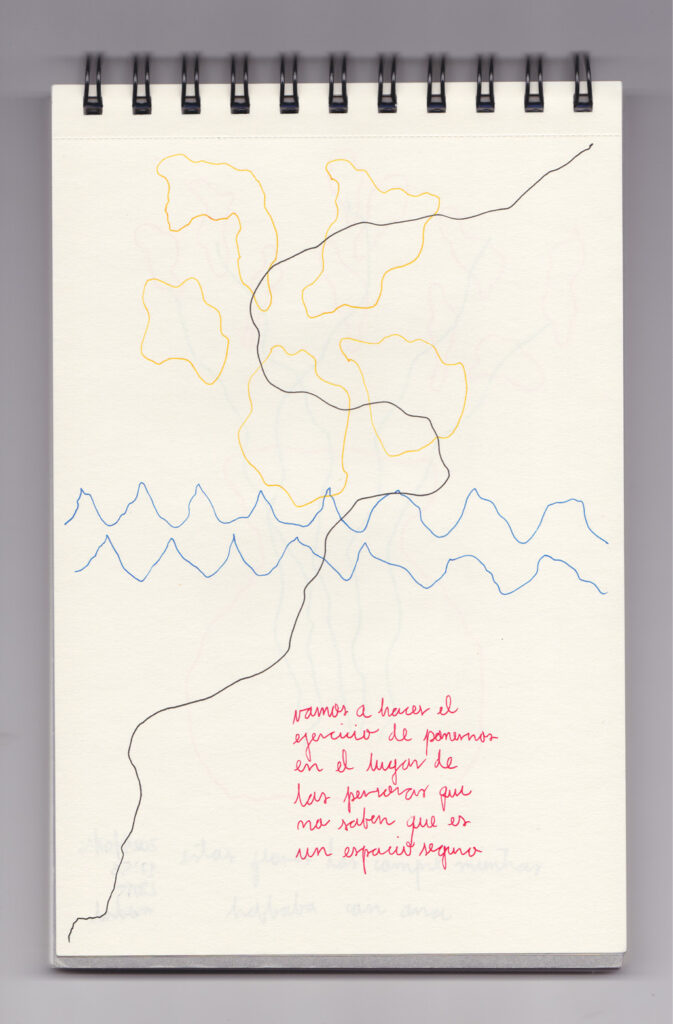 vamos a hacer el
ejercicio de ponernos
en el lugar de
las personas que
no saben que es
un espacio seguro
estas mientras
hablaba con ana